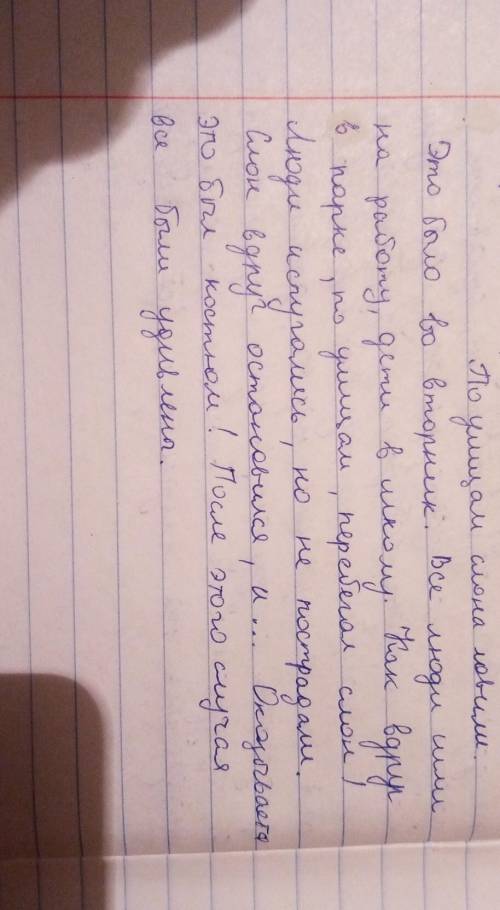 По улицам слона ловили.
Это было во вторник. Все люди шли
на работу, дети в школу. Как вдруг
в парке, по улицам, перебегал слон,
Люди испугались, но не пострадали.
Слон вдруг остановился, и... Оказывается
это был костюм! После этого случая
все были удивлены.